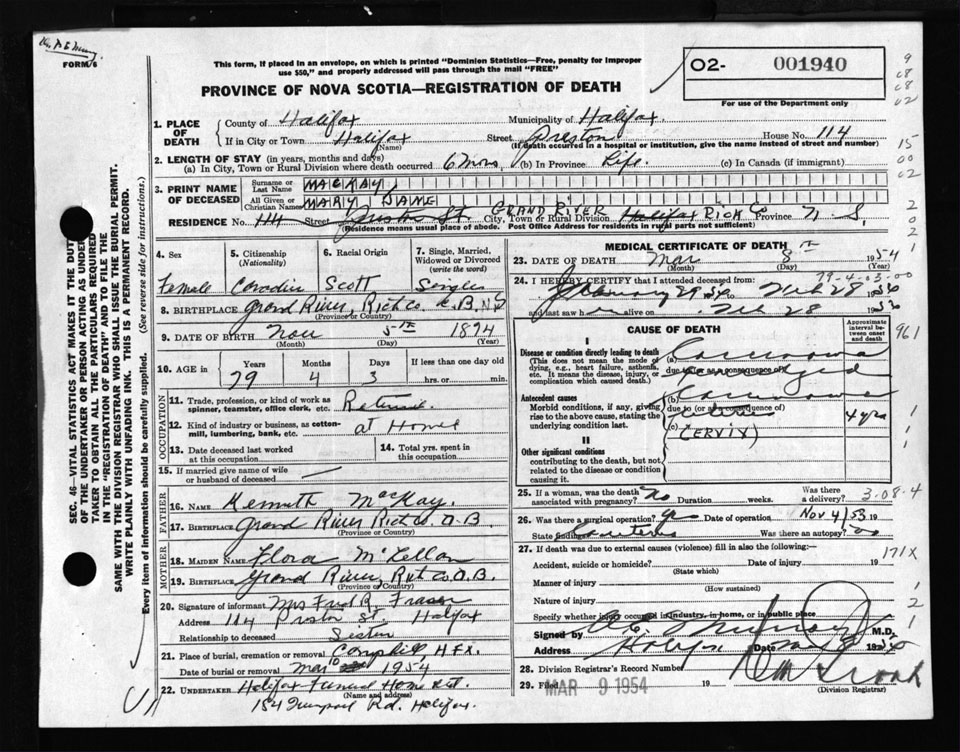 FORM 6
This form, if placed in an envelope, on which is printed "Dominion Statistics—Free, penalty for improper
use $50," and properly addressed will pass through the mail "FREE"
O2- 001940
For use of the Department only
PROVINCE OF NOVA SCOTIA—REGISTRATION OF DEATH
1. PLACE OF DEATH
County of Halifax Municipality of Halifax
If in City or Town Halifax Street Preston House No. 114
(Name) (If death occurred in a hospital or institution, give the name instead of street and number)
2. LENGTH OF STAY (in years, months and days)
(a) In City, Town or Rural Division where death occurred 6 mos (b) In Province Life. (c) In Canada (if immigrant)
3. PRINT NAME OF DECEASED
Surname or Last Name MACKAY
All Given or Christian Names MARY JANE
RESIDENCE No. 114 Street St. City, Town or Rural Division GRAND RIVER Halifax RICH Co Province N.S.
(Residence means usual place of abode. Post Office Address for residents in rural parts not sufficient)
4. Sex Female
5. Citizenship (Nationality)
6. Racial Origin Scott
7. Single, Married, Widowed or Divorced (write the word)
8. BIRTHPLACE Grand River, Rich Co. C.B. N.S
(Province or Country)
9. DATE OF BIRTH Nov 5th 1874
(Month) (Day) (Year)
10. AGE in Years Months Days If less than one day old
79 4 3 hrs. or min.
OCCUPATION
11. Trade, profession, or kind of work as spinner, teamster, office clerk, etc.
12. Kind of industry or business, as cotton-mill, lumbering, bank, etc. at Home
13. Date deceased last worked at this occupation
14. Total yrs. spent in this occupation
15. If married give name of wife or husband of deceased
FATHER
16. Name Kenneth MacKay.
17. Birthplace Grand River Rich Co. C.B.
(Province or Country)
MOTHER
18. MAIDEN NAME Flora McLellan
19. BIRTHPLACE Grand River, C.B.
(Province or Country)
20. Signature of informant Mrs R. Fraser
Address 114 Preston St Halifax
Relationship to deceased Sister
21. Place of burial, cremation or removal HFX.
Date of burial or removal Mar 10 1954
22. UNDERTAKER Halifax Funeral Home
(Name and address)
Rd. Halifax.
MEDICAL CERTIFICATE OF DEATH
23. DATE OF DEATH Mar 8th 1954
(Month) (Day) (Year)
79-4-03-00
24. I HEREBY CERTIFY that I attended deceased from:
and last saw h alive on Feb 28
CAUSE OF DEATH
Approximate interval between onset and death
I
Disease or condition directly leading to death (a) Carcinoma
(This does not mean the mode of dying, e.g., heart failure, asthenia, etc. It means the disease, injury, or complication which caused death.)
due to (or as consequence of)
Antecedent causes (b) Carcinoma
Morbid conditions, if any, giving rise to the above cause, stating the underlying condition last.
due to (or as consequence of) 4 yrs
(c) (CERVIX)
II
Other significant conditions contributing to the death, but not related to the disease or condition causing it.
25. If a woman, was the death associated with pregnancy? No Duration weeks. Was there a delivery?
3-08-4
26. Was there a surgical operation? yes Date of operation Nov 4/53 19
State findings Was there an autopsy? no
27. If death was due to external causes (violence) fill in also the following:—
171X
Accident, suicide or homicide? Date of injury 19
(State which)
Manner of injury
(How sustained)
Nature of injury
Specify whether injury occurred in industry, in home, or in public place
Signed by M.D.
Address Halifax Date
28. Division Registrar's Record Number
29. Filed MAR 9 1954 19
(Division Registrar)
SEC. 46—VITAL STATISTICS ACT MAKES IT THE DUTY
OF THE UNDERTAKER OR PERSON ACTING AS UNDER-
TAKER TO OBTAIN ALL THE PARTICULARS REQUIRED
IN THE "REGISTRATION OF DEATH" AND TO FILE THE
SAME WITH THE DIVISION REGISTRAR WHO SHALL ISSUE THE BURIAL PERMIT.
WRITE PLAINLY WITH UNFADING INK. THIS IS A PERMANENT RECORD.
Every item of information should be carefully supplied. (See reverse side for instructions.)